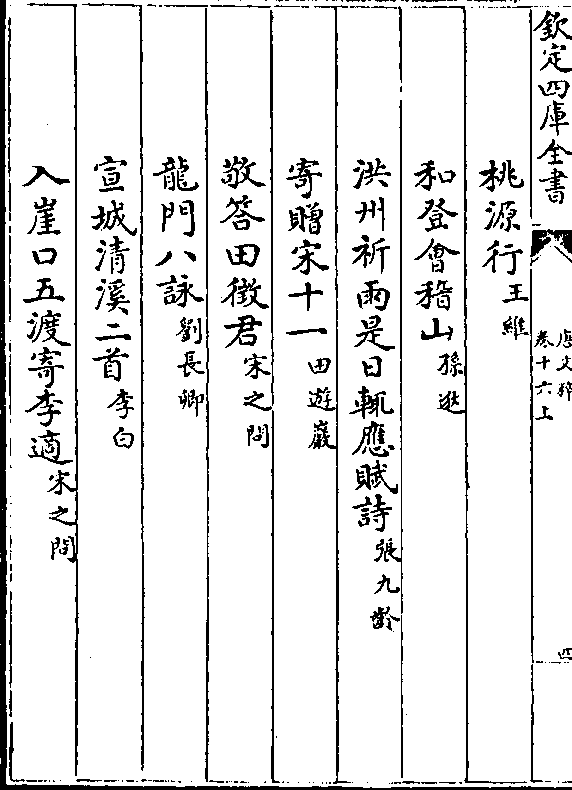 欽定四庫全書
唐文粹
卷十六上
四
桃源行王維
和登會稽山孫逖
洪州祈雨是日輒應賦詩張九齡
寄贈宋十一田遊巖
敬答田徵君宋之問
龍門八詠劉長卿
宣城清溪二首李白
入崖口五渡寄李適宋之問